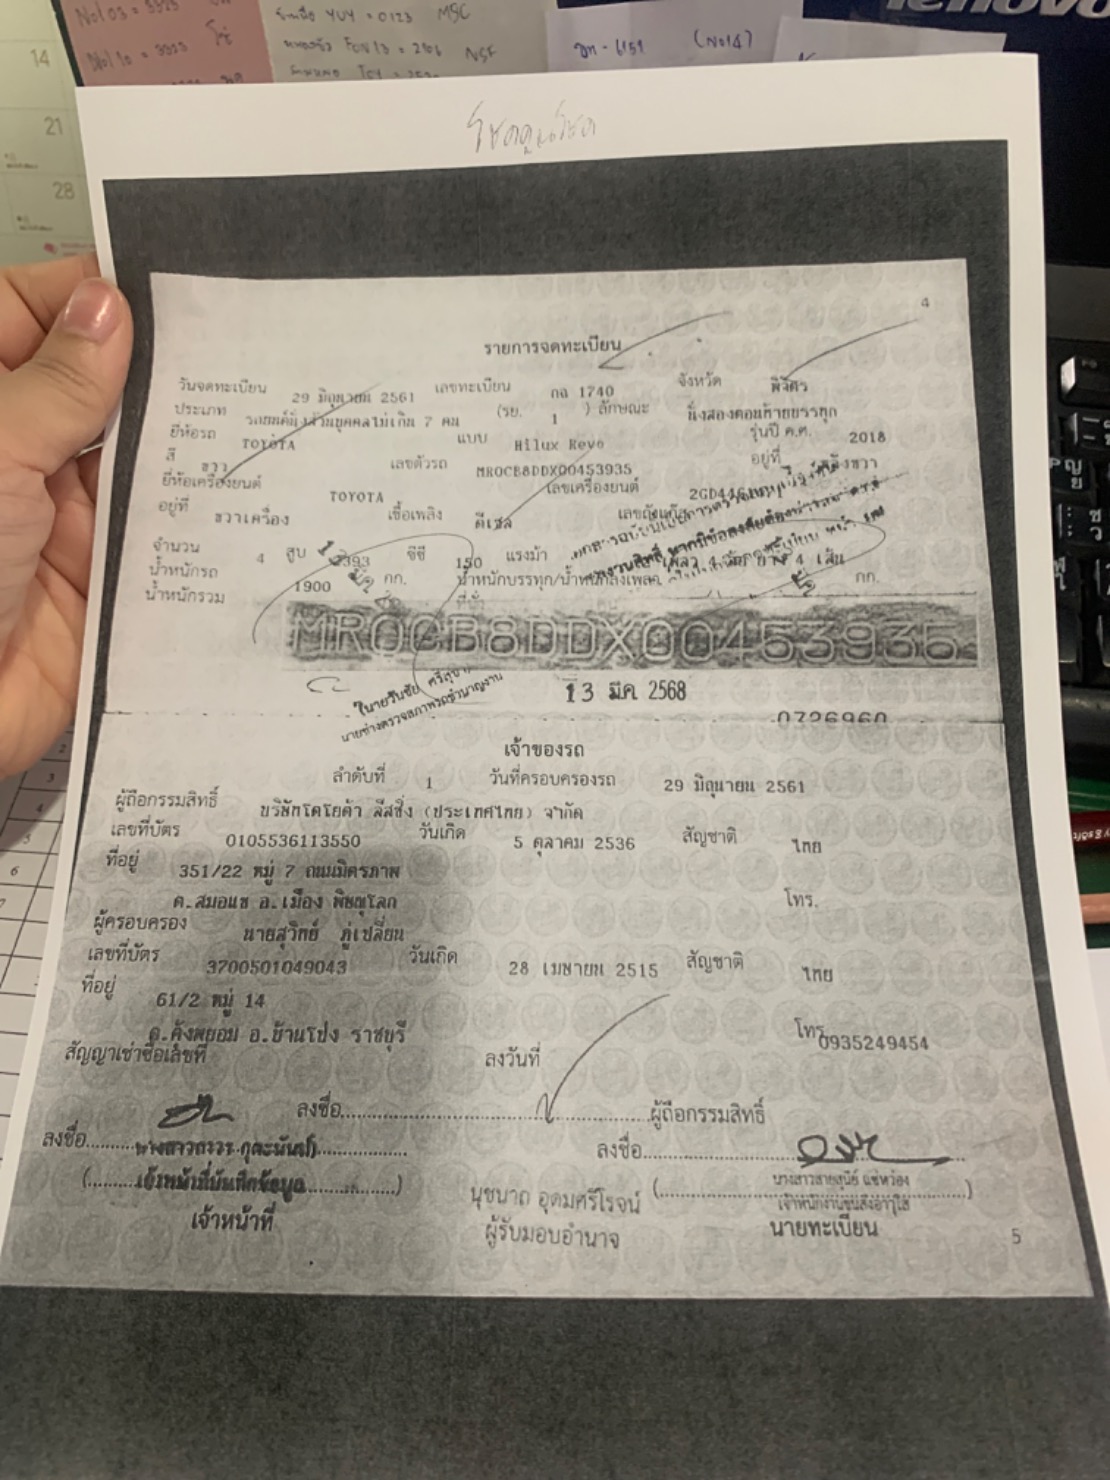 lenovo
No103 = 3393
No110 = 3923
YUY = 0123 MSC
FON13 = 2106 NSF
6151 (No14)
14
21
28
โชคคูณโชค
4
รายการจดทะเบียน
วันจดทะเบียน 29 มิถุนายน 2561 เลขทะเบียน กฉ 1740 จังหวัด พิจิตร
ประเภท รถยนต์นั่งส่วนบุคคลไม่เกิน 7 คน (รย. 1 ) ลักษณะ นั่งสองตอนท้ายบรรทุก
ยี่ห้อรถ TOYOTA แบบ Hilux Revo รุ่นปี ค.ศ. 2018
สี ขาว เลขตัวรถ MROCB8DDX00453935 อยู่ที่
ยี่ห้อเครื่องยนต์ TOYOTA เลขเครื่องยนต์
อยู่ที่ ขวาเครื่อง เชื้อเพลิง ดีเซล
จำนวน 4 สูบ 2393 ซีซี 150 แรงม้า
น้ำหนักรถ 1900 กก. น้ำหนักบรรทุก/น้ำหนักลงเพลา กก.
น้ำหนักรวม ที่นั่ง
MROCB8DDX00453935
นายช่างตรวจสภาพรถชำนาญงาน
13 มีค 2568
0726960
เจ้าของรถ
ลำดับที่ 1 วันที่ครอบครองรถ 29 มิถุนายน 2561
ผู้ถือกรรมสิทธิ์ บริษัทโตโยต้า ลีสซิ่ง (ประเทศไทย) จำกัด
เลขที่บัตร 0105536113550 วันเกิด 5 ตุลาคม 2536 สัญชาติ ไทย
ที่อยู่ 351/22 หมู่ 7 ถนนมิตรภาพ
ต.สมอแข อ.เมือง พิษณุโลก โทร.
ผู้ครอบครอง นายสุวิทย์ ภู่เปลี่ยน
เลขที่บัตร 3700501049043 วันเกิด 28 เมษายน 2515 สัญชาติ ไทย
ที่อยู่ 61/2 หมู่ 14
ต.คุ้งพยอม อ.บ้านโป่ง ราชบุรี โทร. 0935249454
สัญญาเช่าซื้อเลขที่ ลงวันที่
ลงชื่อ ผู้ถือกรรมสิทธิ์
ลงชื่อ ลงชื่อ
เจ้าหน้าที่บันทึกข้อมูล
เจ้าหน้าที่
นุชนาถ อุดมศรีโรจน์
ผู้รับมอบอำนาจ
เจ้าพนักงานขนส่งอาวุโส
นายทะเบียน
5